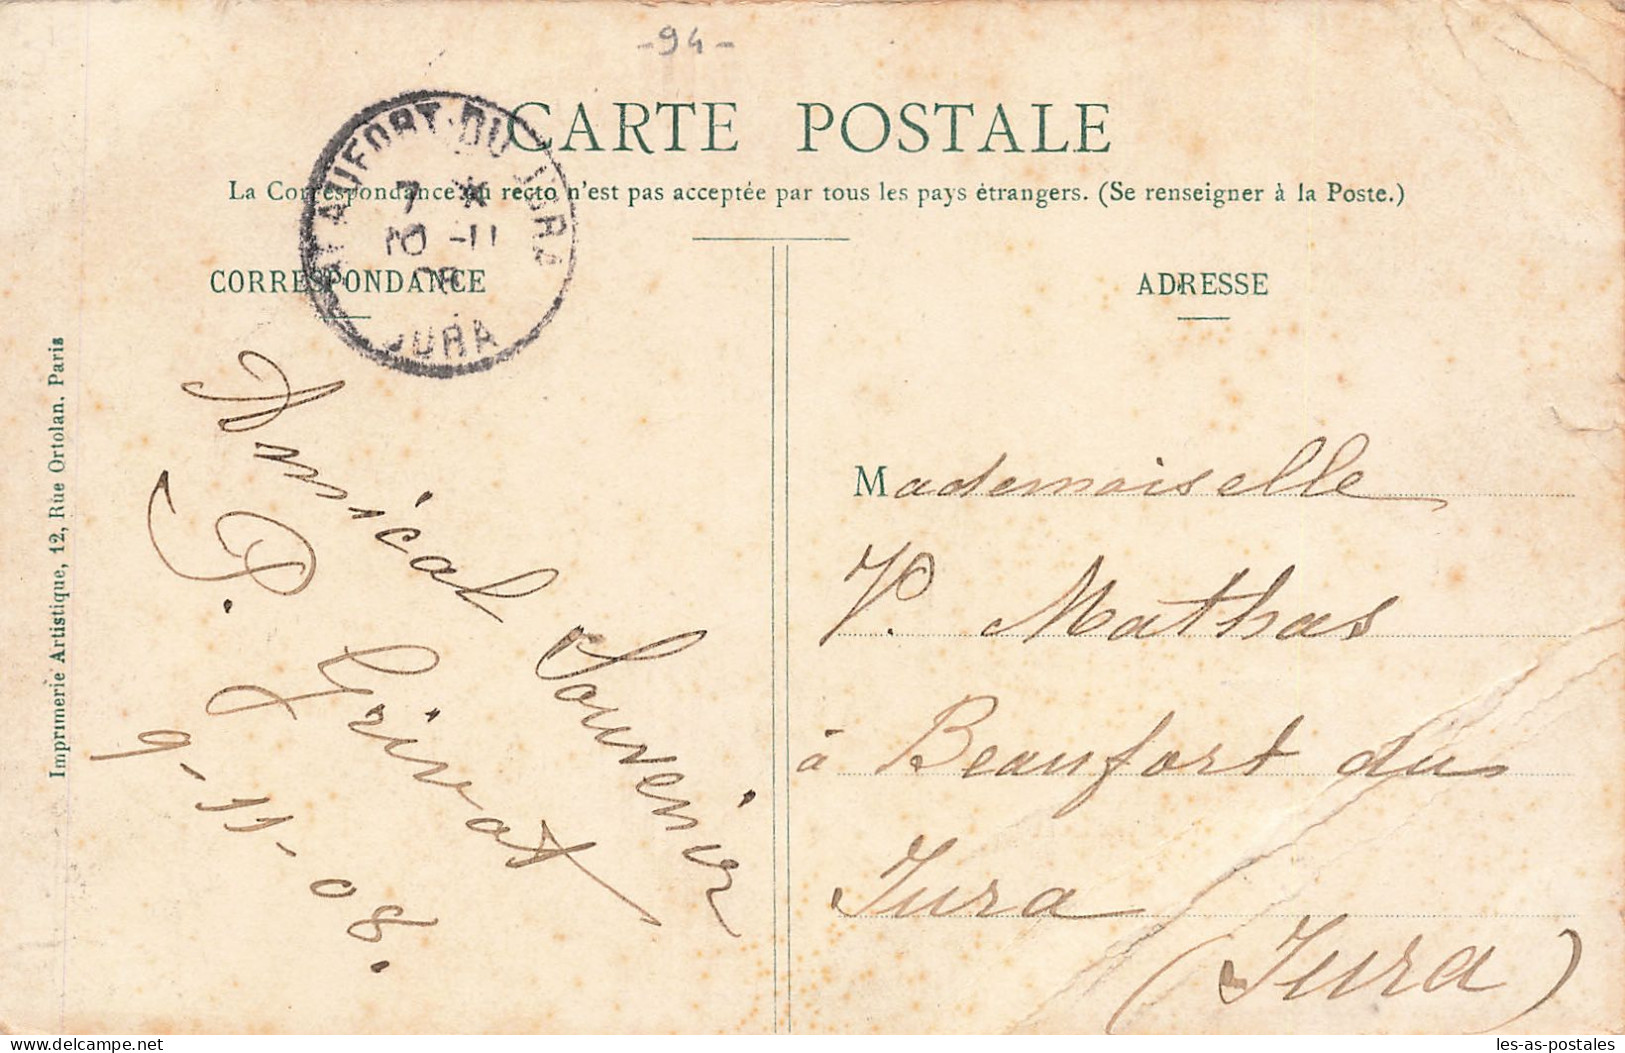 -94-
CARTE POSTALE
La Correspondance au recto n'est pas acceptée par tous les pays étrangers. (Se renseigner à la Poste.)
BEAUFORT-DU-JURA
7 *
10 -11
08
JURA
CORRESPONDANCE
Amical Souvenir
P. Grivat
9-11-08.
ADRESSE
Mademoiselle
V. Mathas
à Beaufort du
Jura
(Jura)
Imprimerie Artistique, 12, Rue Ortolan, Paris
delcampe.net
les-as-postales